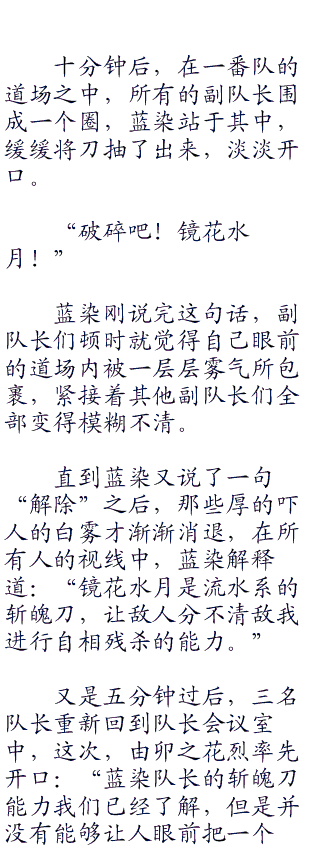 十分钟后，在一番队的
道场之中，所有的副队长围
成一个圈，蓝染站于其中，
缓缓将刀抽了出来，淡淡开
口。
“破碎吧！镜花水
月！”
蓝染刚说完这句话，副
队长们顿时就觉得自己眼前
的道场内被一层层雾气所包
裹，紧接着其他副队长们全
部变得模糊不清。
直到蓝染又说了一句
“解除”之后，那些厚的吓
人的白雾才渐渐消退，在所
有人的视线中，蓝染解释
道：“镜花水月是流水系的
斩魄刀，让敌人分不清敌我
进行自相残杀的能力。”
又是五分钟过后，三名
队长重新回到队长会议室
中，这次，由卯之花烈率先
开口：“蓝染队长的斩魄刀
能力我们已经了解，但是并
没有能够让人眼前把一个